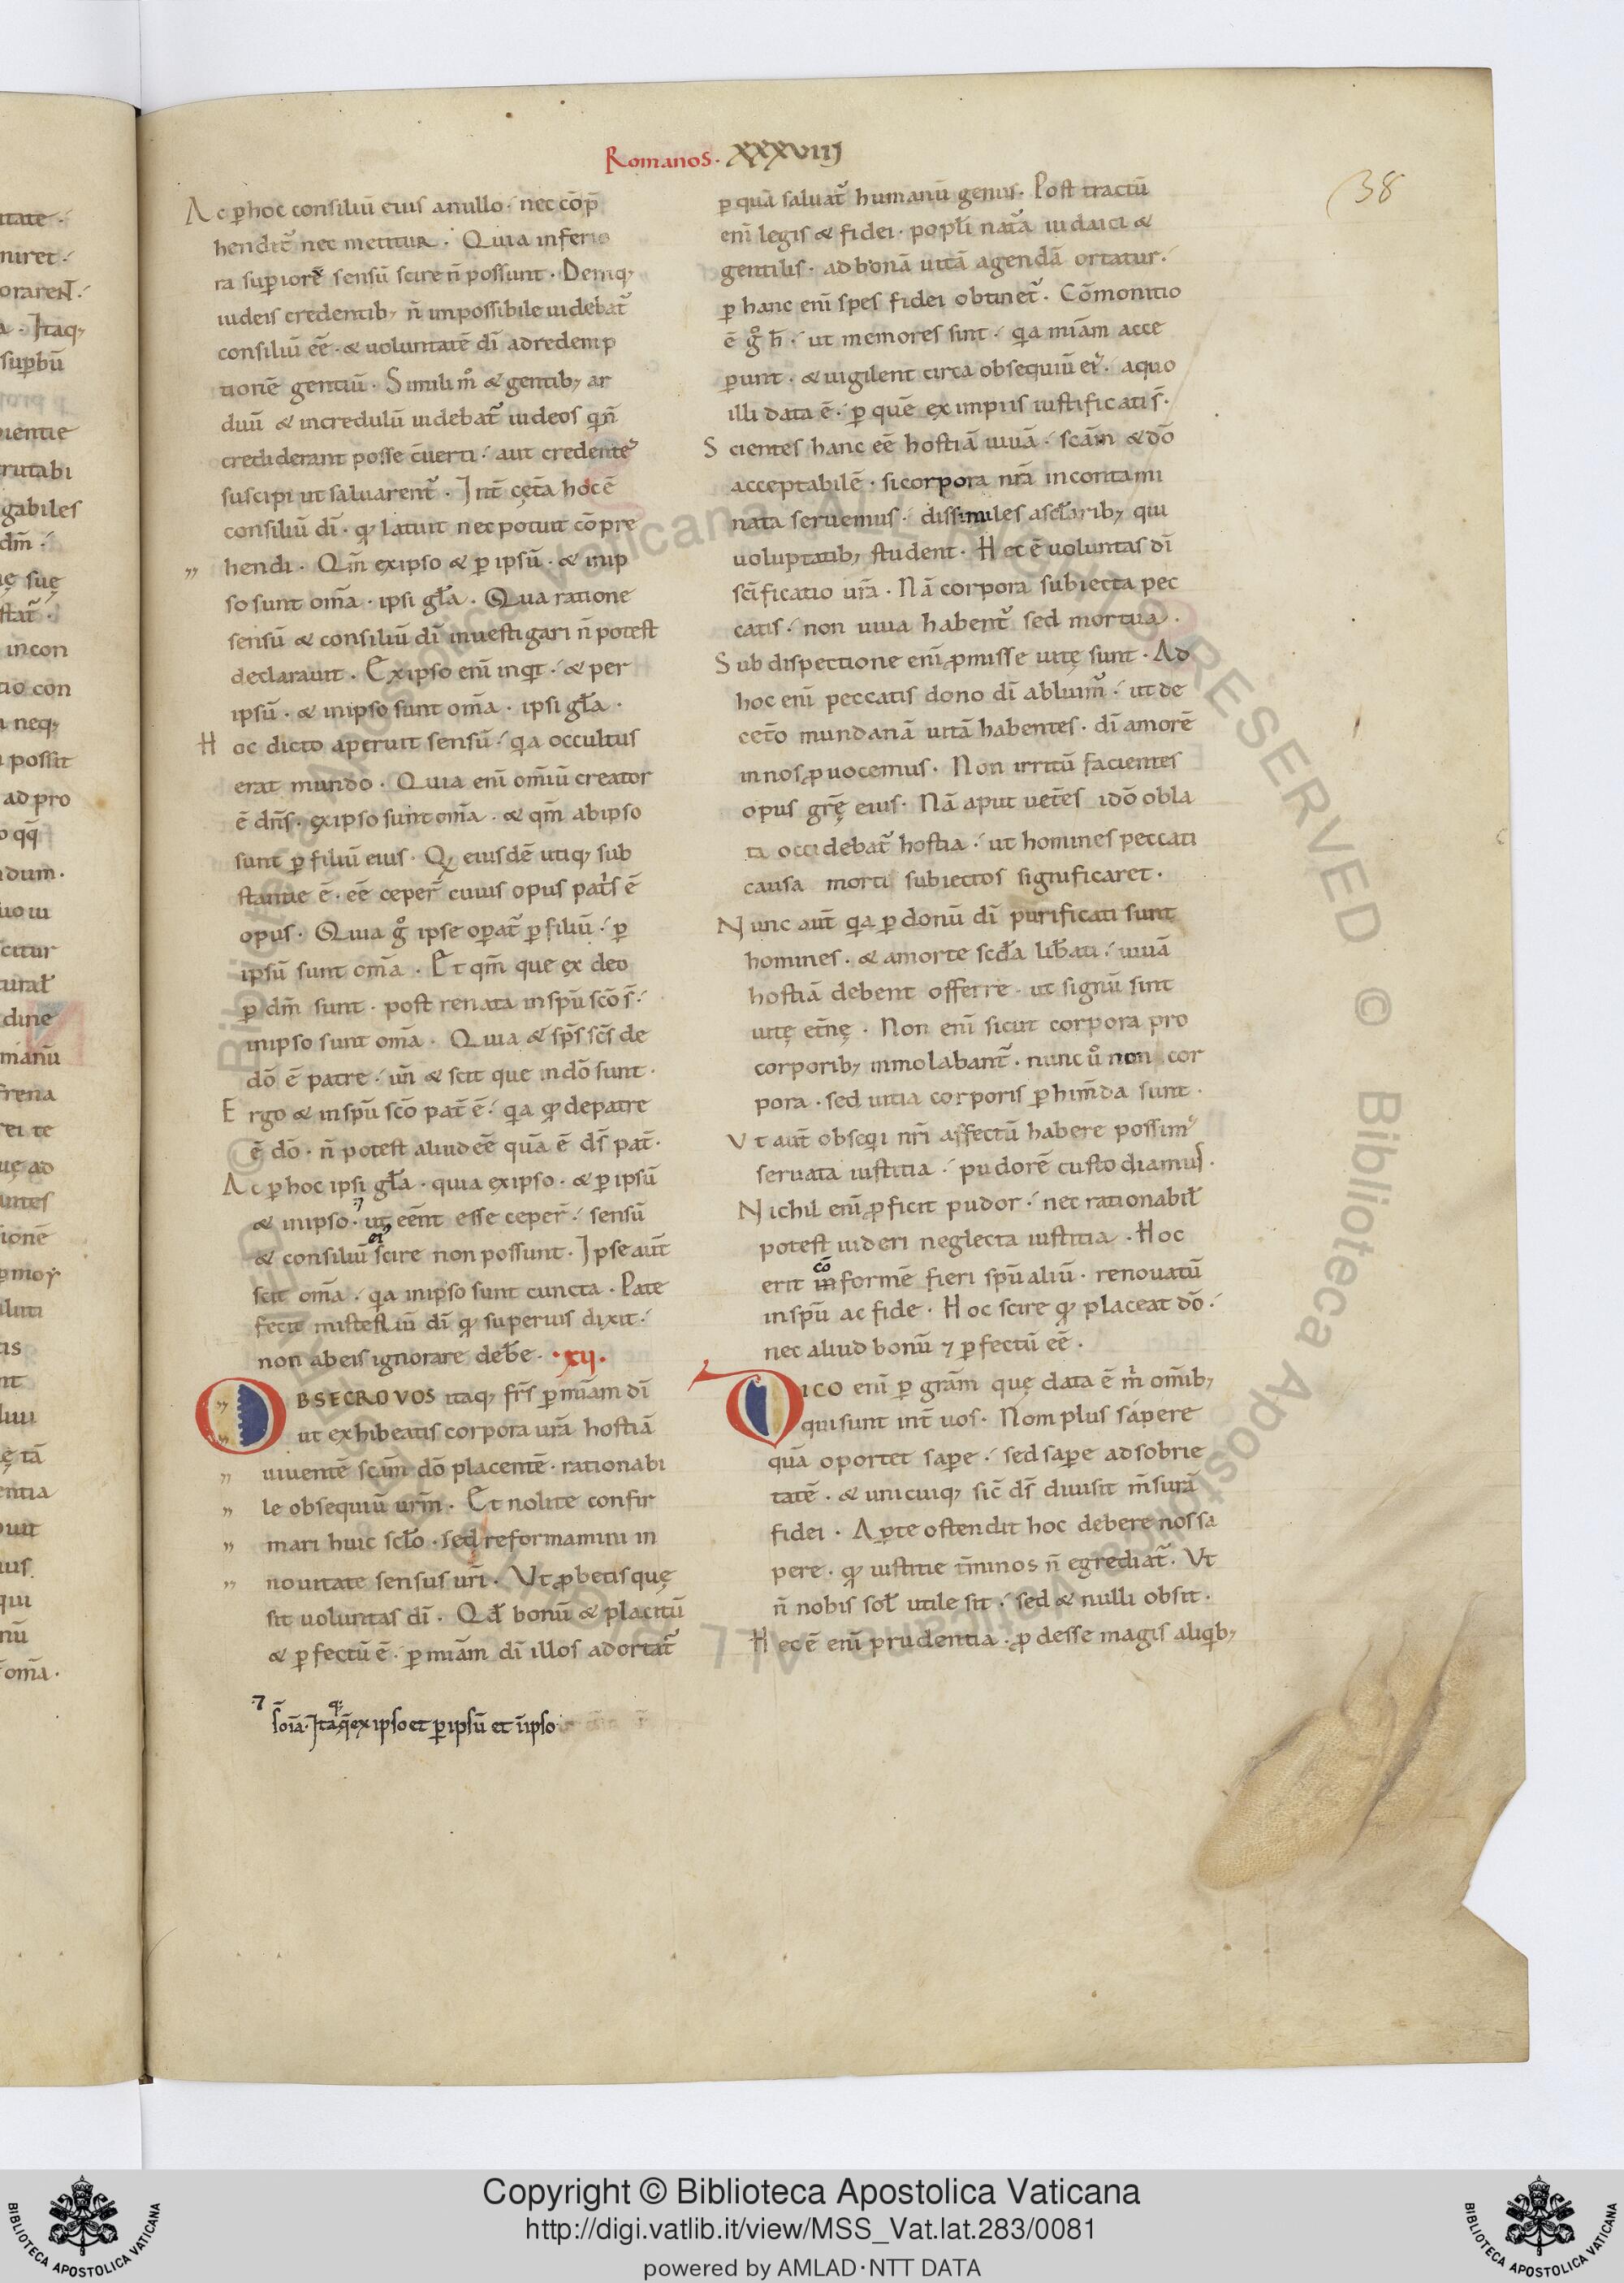 Romanos. XXXVIIJ
38
Ac p̄ hoc consiliū eius anullo. nec cōp̄
hendit᷑ nec metitur. Quia inferio
ra sup̄iorē sensū scire n̄ possunt. Deniq;
iudeis credentib; n̄ impossibile uidebat᷑
consiliū eē. & uoluntatē dī adredemp
tionē gentiū. Similim̊ & gentib; ar
duū & incredulū uidebat᷑ iudeos qn̄
crediderant posse c̄uerti. aut credente᷑
suscipi ut saluarent᷑. Int̄ cęt̄a hoc ē
consiliū dī. qđ latuit nec potuit cōpre
hendi. Qm̄ exipso & p̄ ipsū. & inip
so sunt om̄a. ipsi gl̄a. Qua ratione
sensū & consiliū dī inuestigari n̄ potest
declarauit. Exipso enī inqt. & per
ipsū. & inipso sunt om̄a. ipsi gl̄a.
Hoc dicto aperuit sensū. qa occultus
erat mundo. Quia enī om̄iū creator
ē dn̄s. exipso sunt om̄a. & qm̄ abipso
sunt p̄ filiū eius. Qđ eiusdē utiq; sub
stantie ē. eē ceper̄ cuius opus pat̄s ē
opus. Quia g̊ ipse op̄at᷑ p̄ filiū. p̄
ipsū sunt om̄a. Et qm̄ que ex deo
p̄ dm̄ sunt. post renata inspū scō s̄.
inipso sunt om̄a. Quia & sp̄s sc̄s de
dō ē patre. un̄ & scit que indō sunt.
Ergo & inspū scō pat̄ ē. qa qđ depatre
ē dō. n̄ potest aliud eē quā ē ds̄ pat̄.
Ac p̄ hoc ipsi gl̄a. quia exipso. & p̄ ipsū
& inipso. ut eēnt esse ceper̄. sensū
& consiliū ei᷒ scire non possunt. Ipse aūt
scit om̄a. qa inipso sunt cuncta. Pate
fecit misteriū dī qđ superius dixit.
non abeis ignorare deb̄e. .xij.
OBSECRO VOS itaq; fr̄s p̄ mīam dī
ut exhibeatis corpora ur̄a hostiā
uiuentē scām dō placentē. rationabi
le obsequiū urm̄. Et nolite confir
mari huic sclō. sed reformamini in
nouitate sensus ur̄i. Ut ꝓbetis quę
sit uoluntas dī. Qđ bonū & placitū
& p̄fectū ē. p̄ mīam dī illos adortat᷑
s̄ oīa. Itaq; q̄ ex ipso et p̄ ipsū et īipso
p̄ quā saluat᷑ humanū genus. Post tractū
enī legis & fidei. popl̄i nat̄a iudaici &
gentilis. ad bonā uitā agendā ortatur.
p̄ hanc enī spes fidei obtinet᷑. Cōmonitio
ē g̊ h̄. ut memores sint. qa mīam acce
perunt. & uigilent circa obsequiū ei᷒. aquo
illi data ē. p̄ quē eximpiis iustificati s̄.
Scientes hanc eē hostiā uiuā. scām & dō
acceptabilē. si corpora nr̄a incontami
nata seruemus. dissimiles asclarib; qui
uoluptatib; student. Hec ē uoluntas dī
scīficatio ur̄a. Nā corpora subiecta pec
catis. non uiua habent᷑ sed mortua.
Sub dispectione enī ꝓmisse uitę sunt. Ad
hoc enī peccatis dono dī abluim᷒. ut de
cet̄o mundanā uitā habentes. dī amorē
innos ꝓuocemus. Non irritū facientes
opus gr̄ę eius. Nā aput uet̄es idō obla
ta occidebat᷑ hostia. ut homines peccati
causa morti subiectos significaret.
Nunc aūt qa p̄ donū dī purificati sunt
homines. & amorte scđa lib̄ati. uiuā
hostiā debent offerre. ut signū sint
uitę et̄nę. Non enī sicut corpora pro
corporib; immolabant᷑. nunc ů non cor
pora. sed uitia corporis p̄himēda sunt.
Ut aūt obseqi nr̄i affectū habere possim᷒
seruata iustitia. pudorē custodiamus.
Nichil enī ꝓficit pudor. nec rationabil̄
potest uideri neglecta iustitia. Hoc
erit cōformē fieri spū aliū. renouatū
inspū ac fide. Hoc scire qđ placeat dō.
nec aliud bonū ⁊ p̄fectū eē.
DICO enī p̄ grām quę data ē m̄ om̄ib;
qui sunt int̄ uos. Nom plus sapere
quā oportet sap̄e. sed sap̄e ad sobrie
tatē. & unicuiq; sic̄ ds̄ diuisit m̄surā
fidei. Ap̄te ostendit hoc debere nos sa
pere. qđ iustitie t̄minos n̄ egrediat᷑. Ut
n̄ nobis sol̄ utile sit. sed & nulli obsit.
Hec ē enī prudentia. ꝓdesse magis aliqb;
Copyright © Biblioteca Apostolica Vaticana
http://digi.vatlib.it/view/MSS_Vat.lat.283/0081
powered by AMLAD·NTT DATA